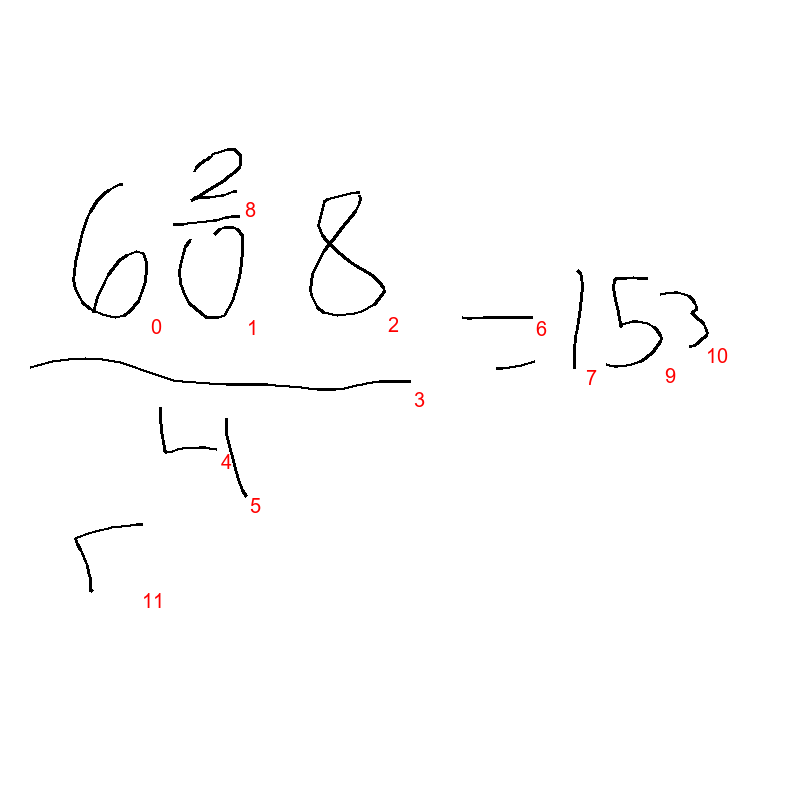 2
608
— = 153
4
0 1 2 3 4 5 6 7 8 9 10 11